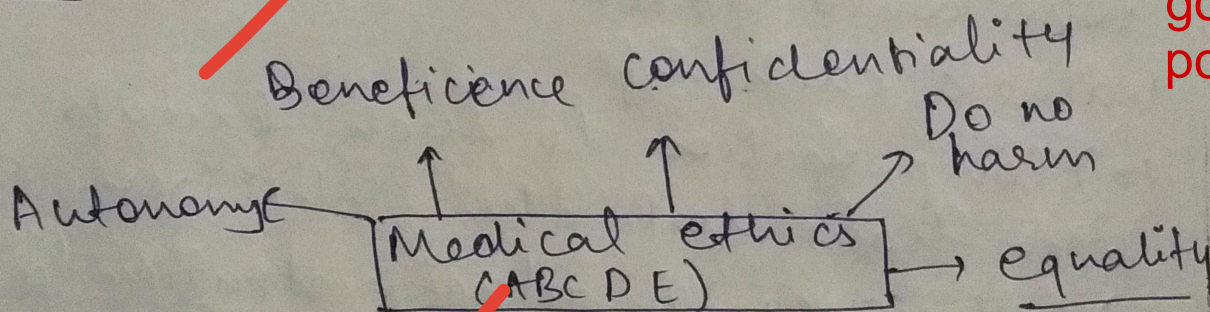 Beneficience confidentiality
Do no
harm
Autonomy
Medical ethics
(ABCDE)
equality